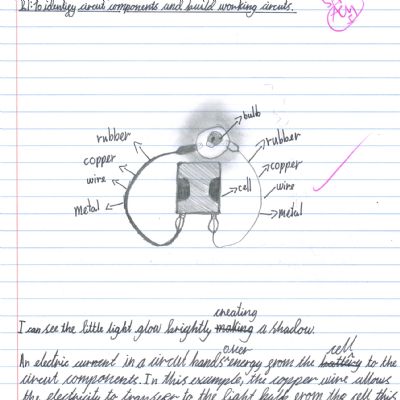 L.I: To identify circuit components and build working circuits.
bulb
rubber
rubber
copper
copper
wire
wire
cell
metal
metal
creating
I can see the little light glow brightly making a shadow.
over cell
An electric current in a circuit hands energy from the battery to the
circuit components. In this example, the copper wire allows
the electricity to transfer to the light bulb from the cell this